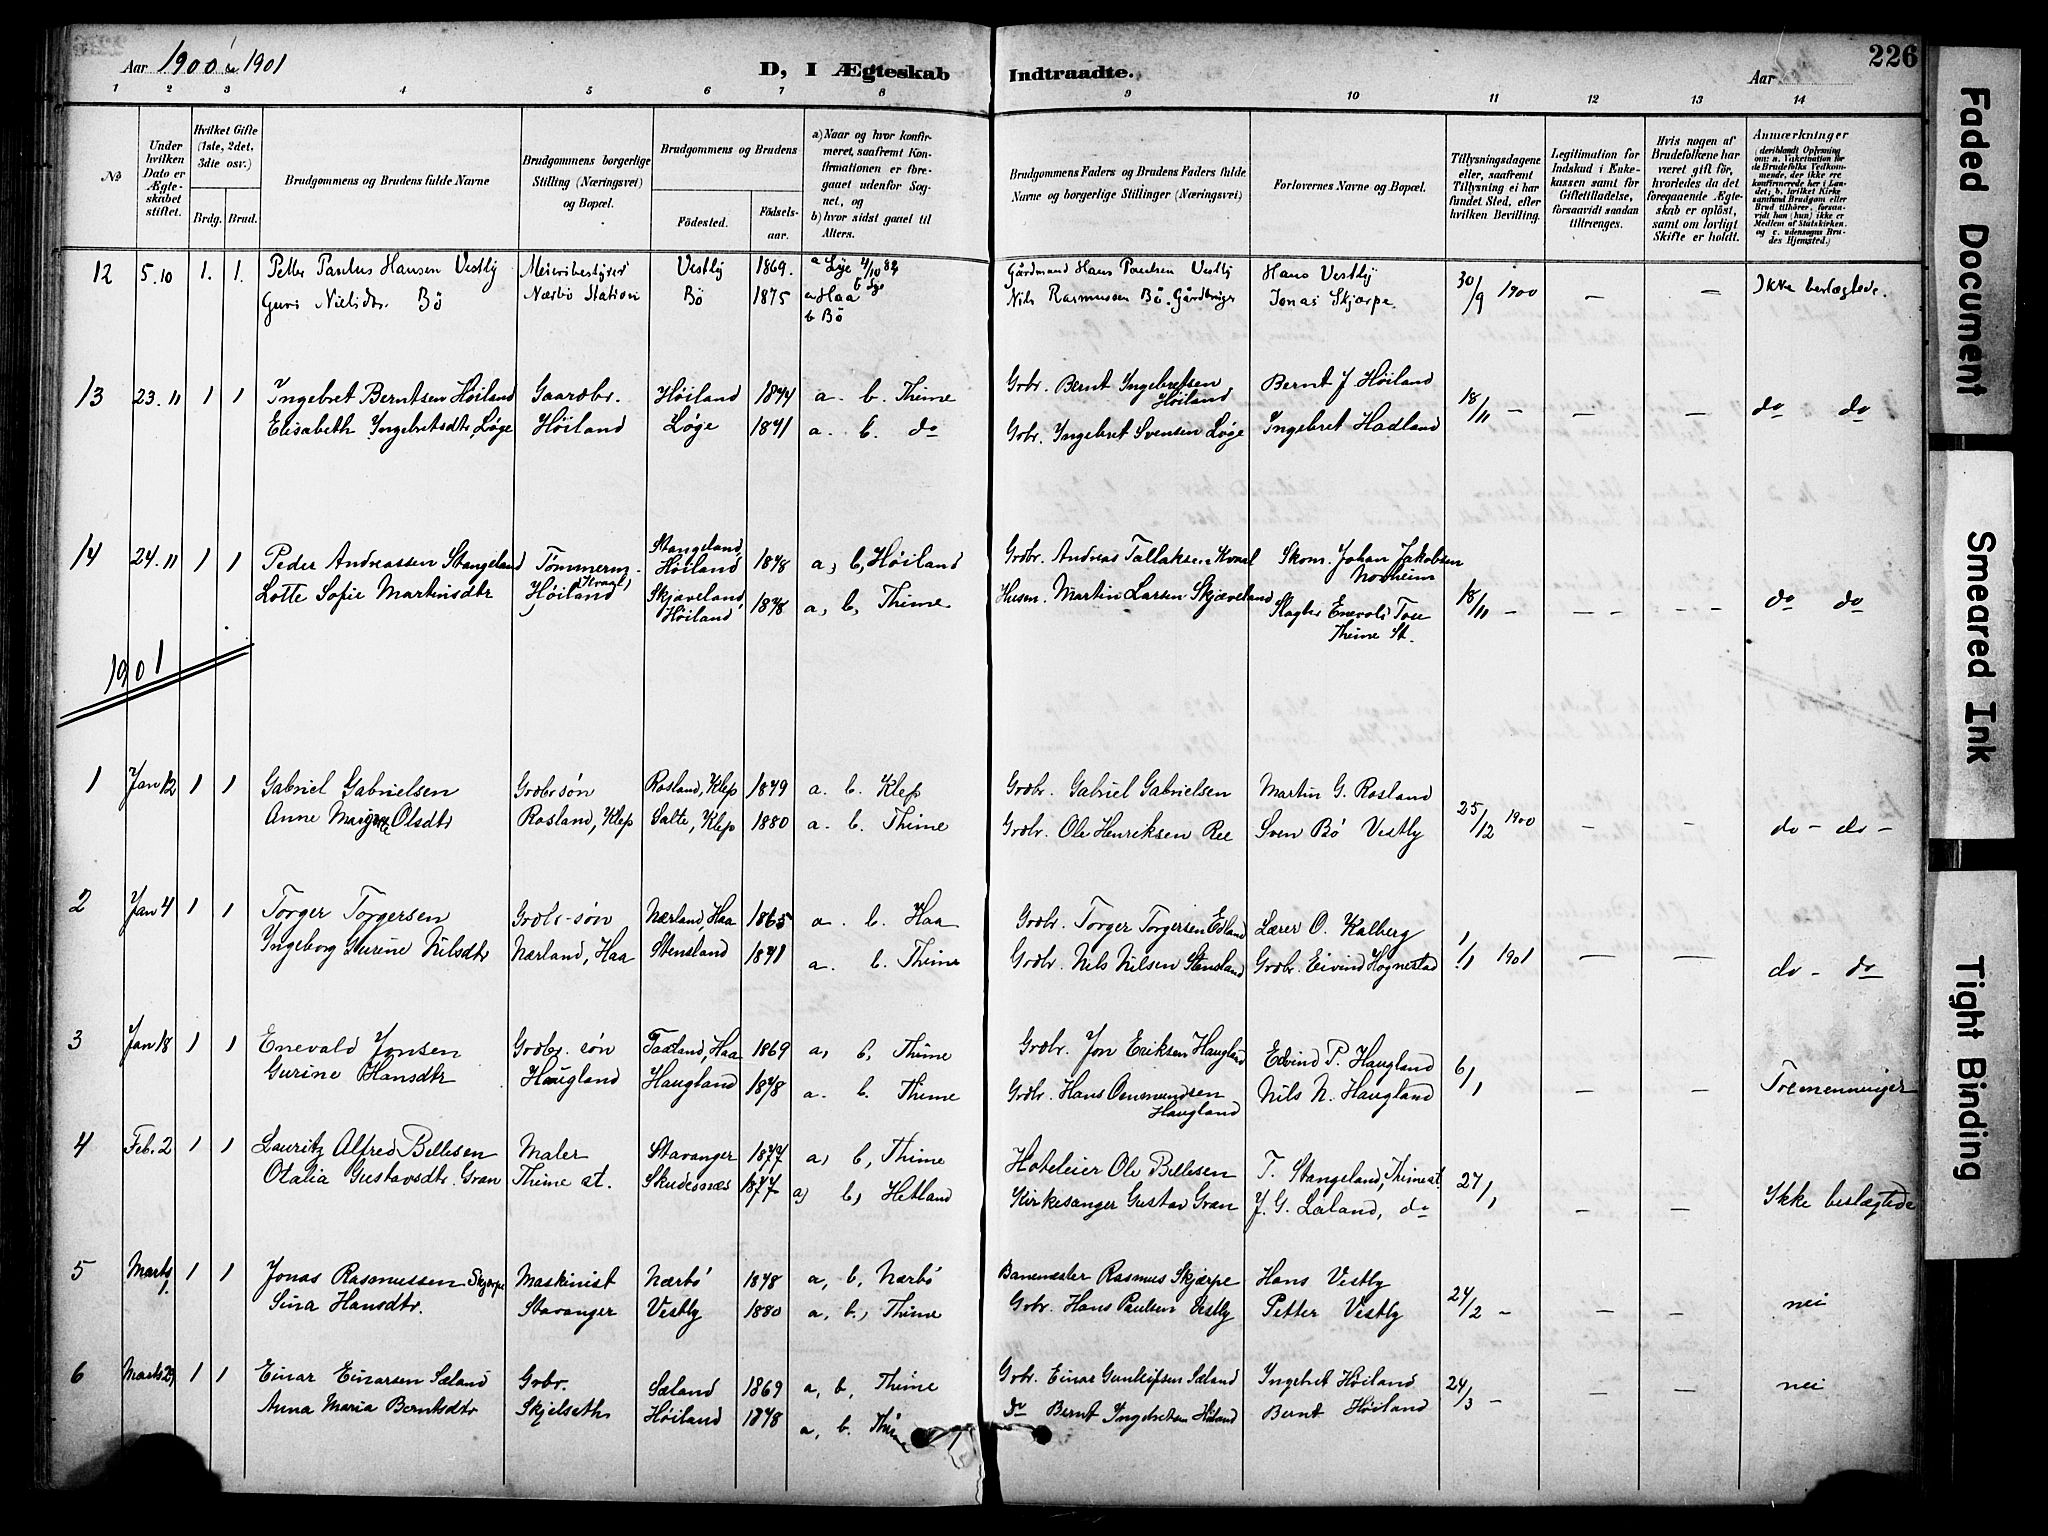 Aar 1900 & 1901
D, I Ægteskab
Indtraadte.
Aar
226
1 2 3 4 5 6 7 8 9 10 11 12 13 14
No
Under hvilken Dato er Ægteskabet stiftet.
Hvilket Gifte (1ste, 2det, 3die osv.)
Brdg. Brud.
Brudgommens og Brudens fulde Navne
Brudgommens borgerlige Stilling (Næringsvei) og Bopæl.
Brudgommens og Brudens
Fødested.
Fødselsaar.
a) Naar og hvor konfirmeret, saafremt Konfirmationen er foregaaet udenfor Sognet, og
b) hvor sidst gaaet til Alters.
Brudgommens Faders og Brudens Faders fulde Navne og borgerlige Stillinger (Næringsvei)
Forlovernes Navne og Bopæl.
Tillysningsdagene eller, saafremt Tillysning ei har fundet Sted, efter hvilken Bevilling.
Legitimation for Indskud i Enkekassen samt for Giftetilladelse, forsaavidt saadan tiltrænges.
Hvis nogen af Brudefolkene har været gift før, hvorledes da det foregaaende Ægteskab er opløst, samt om lovligt Skifte er holdt.
Anmærkninger
(deriblandt Oplysning om: a. Vakcination for de Brudefolks Vedkommende, der ikke ere konfirmerede her i Landet; b. hvilket Kirkesamfund Brudgom eller Brud tilhører, forsaavidt han (hun) ikke er Medlem af Statskirken, og c. udensogns Brudes Hjemsted.)
12 5.10 1. 1. Petter Paulus Hansen Vestly Meieribestyrer Vestly 1869. a Lye 4/10 84 b Lye Gårdmand Hans Paulsen Vestly Hans Vestly 30/9 1900 — — Ikke beslægtede.
Guri Nielsdtr. Bö Nærbö Station Bö 1875 a Haa b Bö Nils Rasmussen Bö. Gårdbruger Jonas Skjærpe
13 23.11 1 1 Ingebret Berntsen Høiland Gaardbr. Høiland 1874 a. b. Thime Grdbr. Bernt Ingebretsen Høiland Bernt J. Høiland 18/11 — — — do do
Elisabeth Ingebretsdtr. Løge Høiland Løge 1871 a. b. do Grbr. Ingebret Svensen Løge Ingebret Hadland
14 24.11 1 1 Peder Andreassen Stangeland Tømmerm. Stangeland, Høiland 1878 a, b, Høiland Grdbr. Andreas Tallaksen Skom. Johan Jakobsen Norheim 18/11 — — — — — do do
Lotte Sofie Martinsdtr Høiland Skjæveland, Høiland 1878 a, b, Thime Husm. Martin Larsen Skjæveland Slagter Enevold Tou Thime St.
1901
1 Jan 12 1 1 Gabriel Gabrielsen Grdbrsøn Rosland, Klep 1879 a. b. Klep Grdbr. Gabriel Gabrielsen Martin G. Rosland 25/12 1900 — — do — do —
Anne Margrete Olsdtr Rosland, Klep Salte, Klep 1880 a. b. Thime Grdbr. Ole Henriksen Ree Sven Bö Vestly
2 Jan 4 1 1 Torger Torgersen Grdbr-søn Nærland, Haa 1865 a. b. Haa Grdbr. Torger Torgersen Edland Lærer O. Kalberg 1/1 1901 — — do — do
Ingeborg Gurine Nilsdtr Nærland, Haa Stensland 1871 a. b. Thime Grdbr. Nils Nilsen Stensland Grdbr. Eivind Hognestad
3 Jan 18 1 1 Enevald Jonsen Grdbr. søn Taxland, Haa 1869 a, b, Thime Grdbr. Jon Eriksen Haugland Edvind P. Haugland 6/1 — — Tremenninger
Gurine Hansdtr Haugland Haugland 1878 a. b. Thime Grdbr. Hans Ommundsen Haugland Nils N. Haugland
4 Feb. 2 1 1 Lauritz Alfred Bellesen Maler Stavanger 1877 a, b, Thime Hoteleier Ole Bellesen T. Stangeland, Thime st. 27/1 — — Ikke beslægtede
Otalia Gustavsdtr. Gran Thime st. Skudesnæs 1877 a) b, Hetland Kirkesanger Gustav Gran J. G. Laland, do
5 Marts 1. 1 1 Jonas Rasmussen Skjærpe Maskinist Nærbö 1878 a, b, Nærbö Banemester Rasmus Skjærpe Hans Vestly 24/2 — — — nei
Sina Hansdtr. Stavanger Vestly 1880 a, b, Thime Grbr. Hans Paulsen Vestly Petter Vestly
6 Marts 29 1 1 Einar Einarsen Sæland Grbr. Sæland 1869 a, b, Thime Grbr. Einar Gunleifsen Sæland Ingebret Høiland 24/3 — — — nei
Anna Maria Berntsdtr Skjelseth Høiland 1878 a, b. Thime do Bernt Ingebretsen Høiland Bernt Høiland
Faded Document
Smeared Ink
Tight Binding